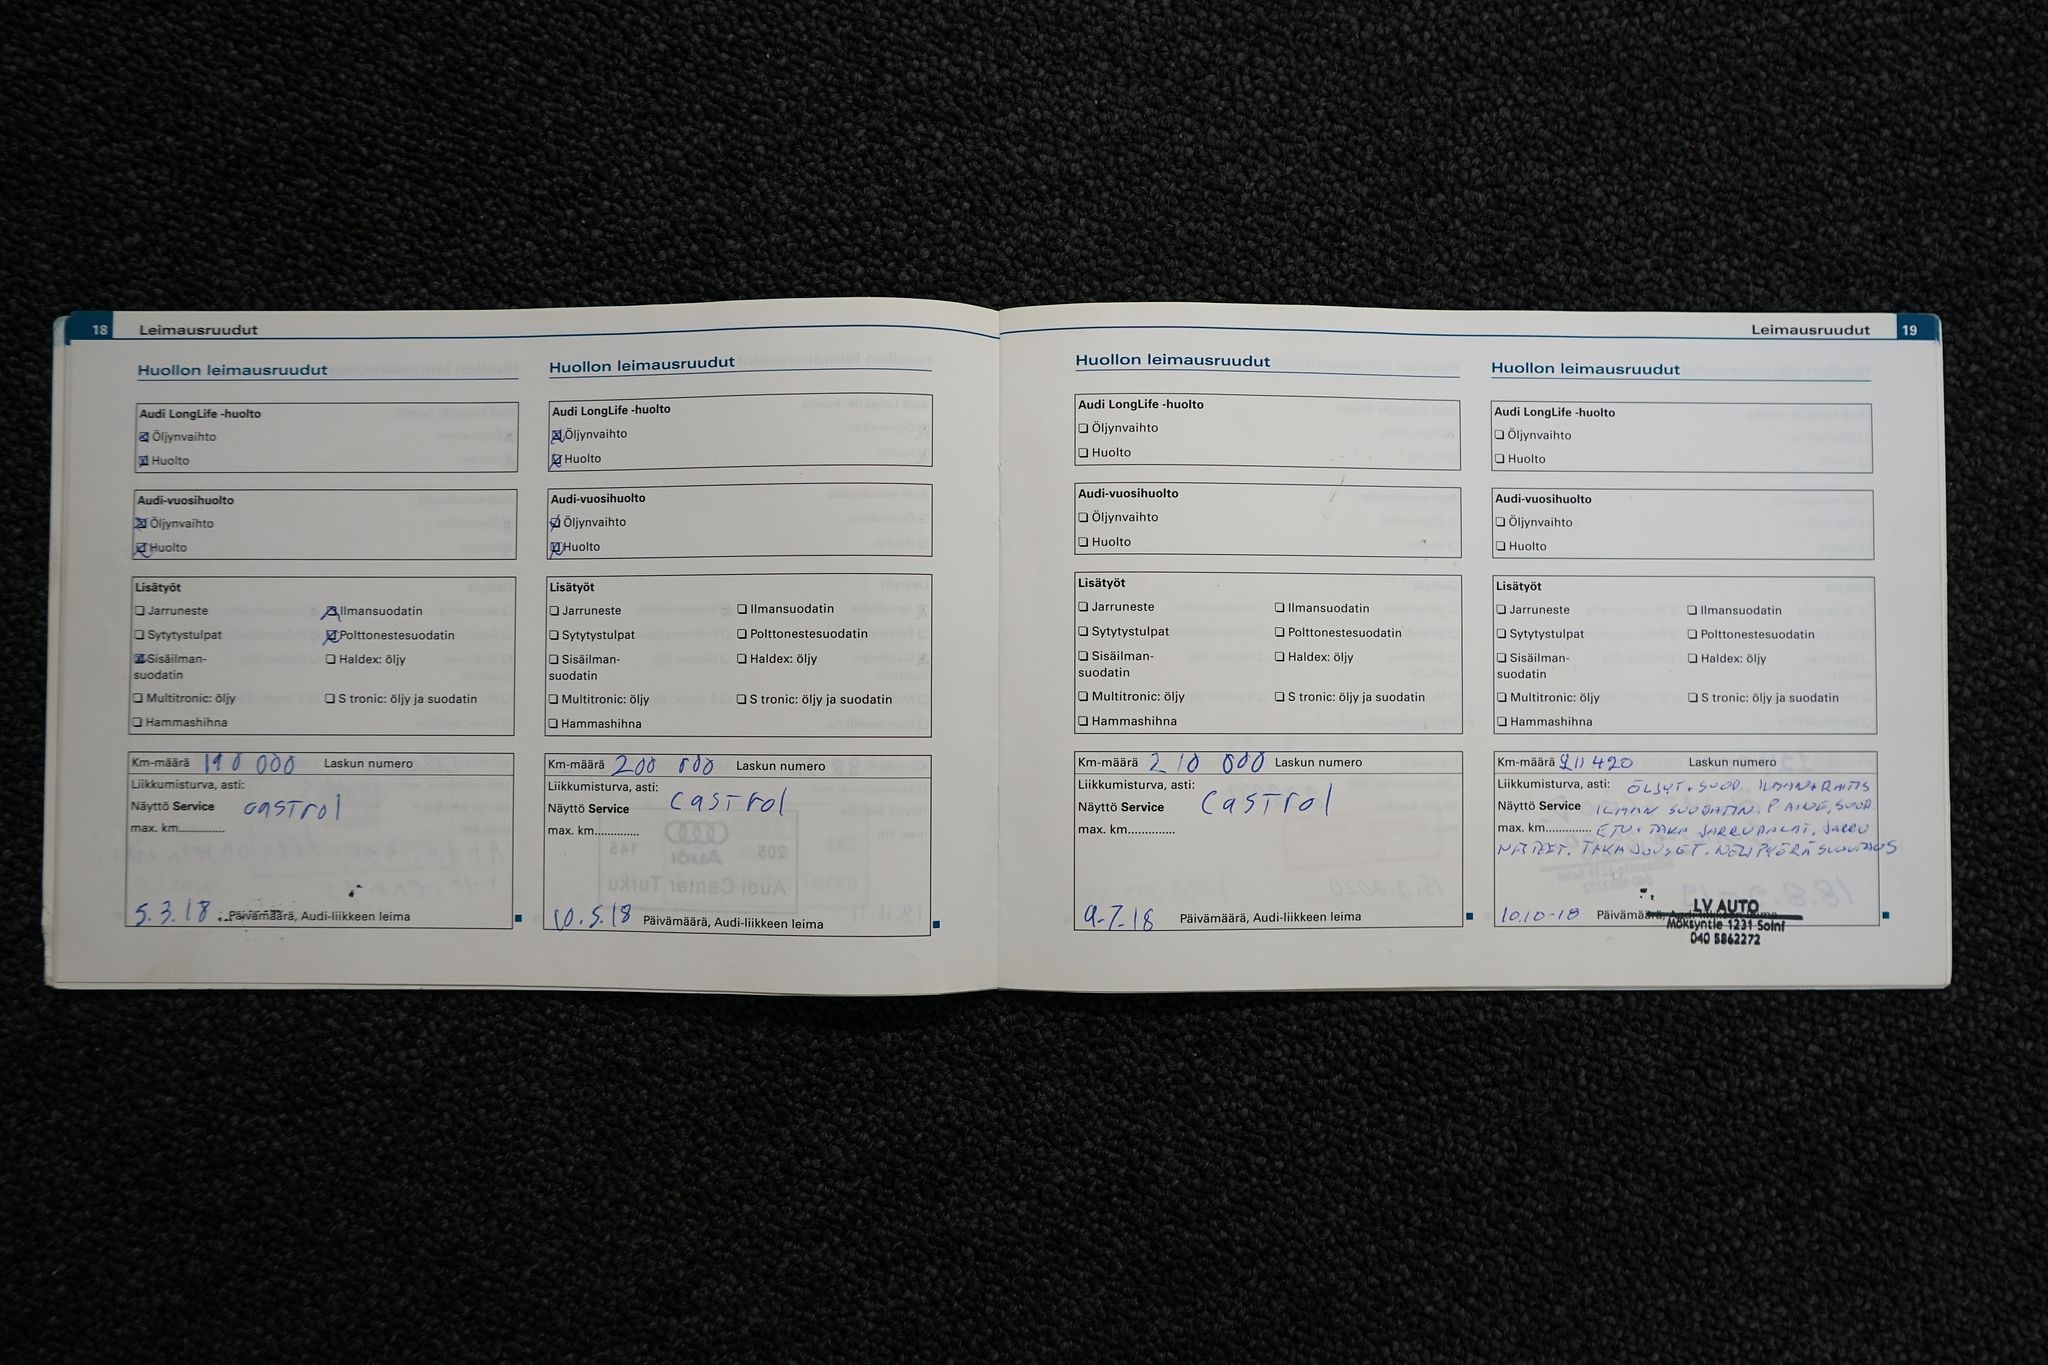 18 Leimausruudut
Huollon leimausruudut
Audi LongLife -huolto
Öljynvaihto
Huolto
Audi-vuosihuolto
Öljynvaihto
Huolto
Lisätyöt
Jarruneste Ilmansuodatin
Sytytystulpat Polttonestesuodatin
Sisäilman- Haldex: öljy
suodatin
Multitronic: öljy S tronic: öljy ja suodatin
Hammashihna
Km-määrä 190 000 Laskun numero
Liikkumisturva, asti:
Näyttö Service castrol
max. km..............
5.3.18 Päivämäärä, Audi-liikkeen leima
Huollon leimausruudut
Audi LongLife -huolto
Öljynvaihto
Huolto
Audi-vuosihuolto
Öljynvaihto
Huolto
Lisätyöt
Jarruneste Ilmansuodatin
Sytytystulpat Polttonestesuodatin
Sisäilman- Haldex: öljy
suodatin
Multitronic: öljy S tronic: öljy ja suodatin
Hammashihna
Km-määrä 200 000 Laskun numero
Liikkumisturva, asti:
Näyttö Service castrol
max. km..............
10.5.18 Päivämäärä, Audi-liikkeen leima
Leimausruudut 19
Huollon leimausruudut
Audi LongLife -huolto
Öljynvaihto
Huolto
Audi-vuosihuolto
Öljynvaihto
Huolto
Lisätyöt
Jarruneste Ilmansuodatin
Sytytystulpat Polttonestesuodatin
Sisäilman- Haldex: öljy
suodatin
Multitronic: öljy S tronic: öljy ja suodatin
Hammashihna
Km-määrä 210 000 Laskun numero
Liikkumisturva, asti:
Näyttö Service castrol
max. km..............
9-7-18 Päivämäärä, Audi-liikkeen leima
Huollon leimausruudut
Audi LongLife -huolto
Öljynvaihto
Huolto
Audi-vuosihuolto
Öljynvaihto
Huolto
Lisätyöt
Jarruneste Ilmansuodatin
Sytytystulpat Polttonestesuodatin
Sisäilman- Haldex: öljy
suodatin
Multitronic: öljy S tronic: öljy ja suodatin
Hammashihna
Km-määrä 211 420 Laskun numero
Liikkumisturva, asti: ÖLJYT + SUOD. ILMAN + RAITIS
Näyttö Service ILMAN SUODATIN. P AINE, SUOD
max. km.............. ETU + TAKA JARRUPALAT. JARRU
TAKA JOUSET.
10.10-18 Päivämäärä, Audi-liikkeen leima
LV AUTO
Moksyntie 1231 Solnf
040 5862272